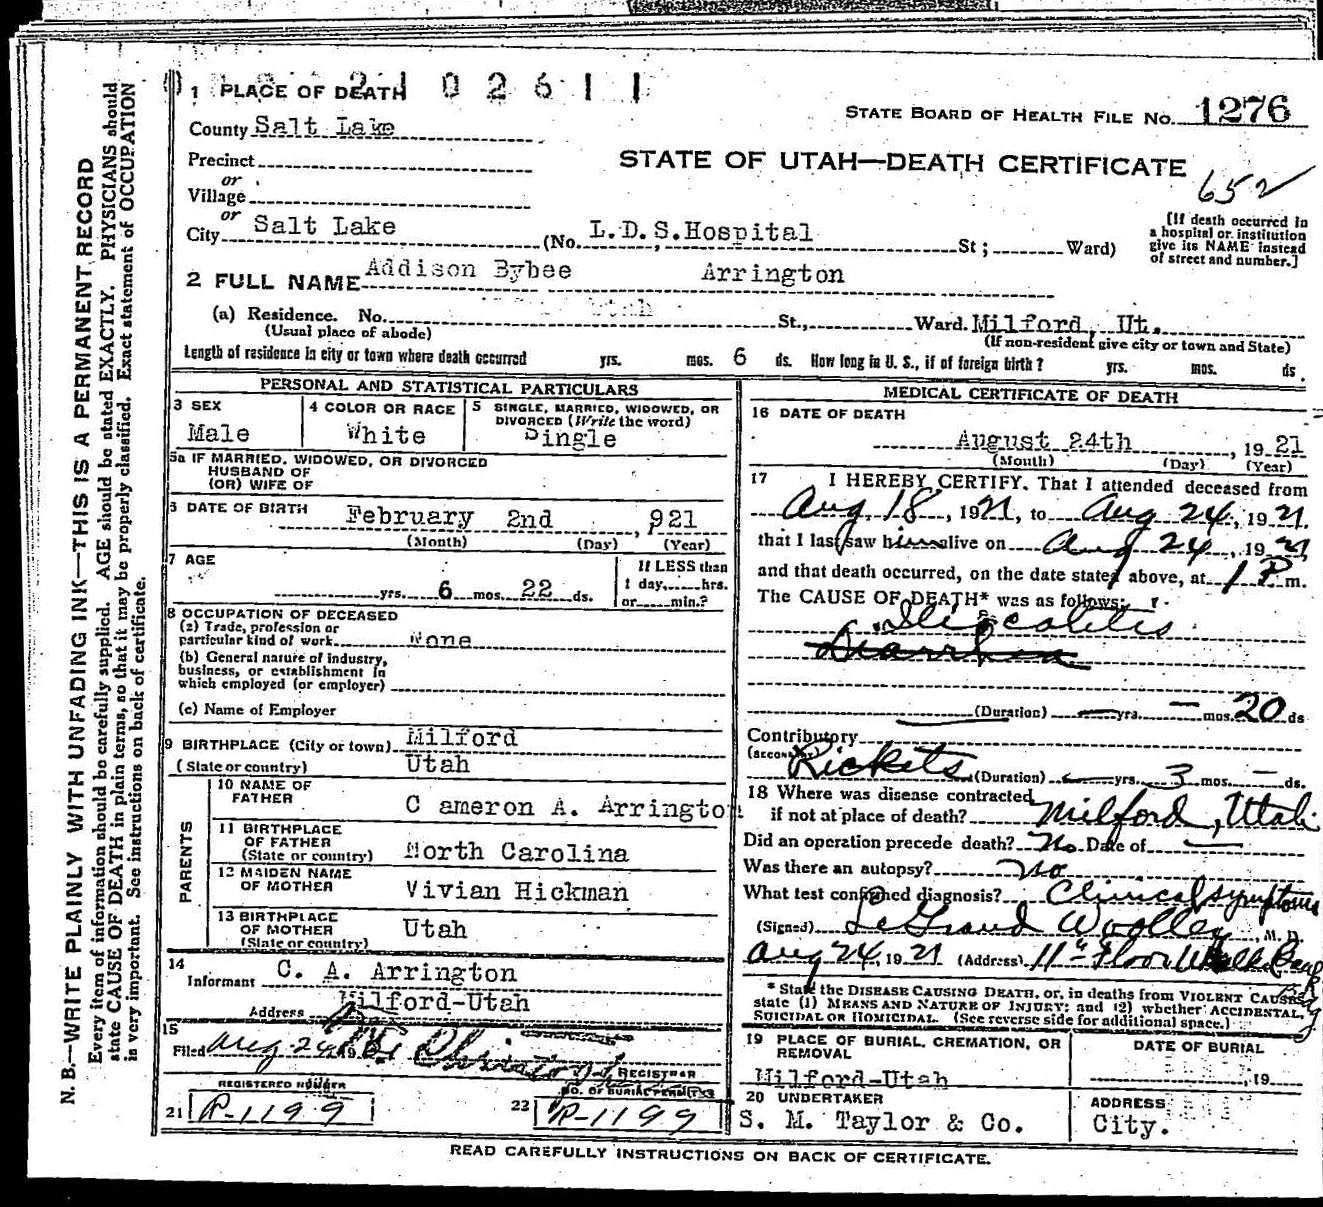 2 1 0 2 6 1 1
1 PLACE OF DEATH
STATE BOARD OF HEALTH FILE NO. 1276
County Salt Lake
STATE OF UTAH—DEATH CERTIFICATE
652
Precinct
or
Village
or
City Salt Lake (No. L.D.S.Hospital St; Ward)
[If death occurred in
a hospital or institution
give its NAME instead
of street and number.]
2 FULL NAME Addison Bybee Arrington
(a) Residence. No. Utah St., Ward. Milford, Ut.
(Usual place of abode) (If non-resident give city or town and State)
Length of residence in city or town where death occurred yrs. mos. 6 ds. How long in U. S., if of foreign birth? yrs. mos. ds.
PERSONAL AND STATISTICAL PARTICULARS
3 SEX
Male
4 COLOR OR RACE
White
5 SINGLE, MARRIED, WIDOWED, OR
DIVORCED (Write the word)
Single
5a IF MARRIED, WIDOWED, OR DIVORCED
HUSBAND OF
(OR) WIFE OF
6 DATE OF BIRTH February 2nd , 921
(Month) (Day) (Year)
7 AGE
yrs. 6 mos. 22 ds.
If LESS than
1 day, hrs.
or min.?
8 OCCUPATION OF DECEASED
(z) Trade, profession or
particular kind of work None
(b) General nature of industry,
business, or establishment in
which employed (or employer)
(c) Name of Employer
9 BIRTHPLACE (City or town) Milford
(State or country) Utah
PARENTS
10 NAME OF
FATHER C ameron A. Arrington
11 BIRTHPLACE
OF FATHER
(State or country) North Carolina
12 MAIDEN NAME
OF MOTHER Vivian Hickman
13 BIRTHPLACE
OF MOTHER
(State or country) Utah
14
Informant C. A. Arrington
Address Milford-Utah
15
Filed Aug 24
REGISTRAR
REGISTERED NUMBER
21 P-1199
NO. OF BURIAL PERMIT
22 P-1199
MEDICAL CERTIFICATE OF DEATH
16 DATE OF DEATH
August 24th , 19 21
(Month) (Day) (Year)
17 I HEREBY CERTIFY. That I attended deceased from
Aug 18, 1921, to Aug 24, 1921.
that I last saw him alive on Aug 24, 1921
and that death occurred, on the date stated above, at 1 P m.
The CAUSE OF DEATH* was as follows:
Ileocolitis
Diarrhea
(Duration) — yrs. — mos. 20 ds
Contributory
Rickets (Duration) — yrs. 3 mos. — ds.
18 Where was disease contracted
if not at place of death? Milford, Utah
Did an operation precede death? No Date of —
Was there an autopsy? No
What test confirmed diagnosis? Clinical symptoms
(Signed) LeGrand Woolley, M. D.
Aug 24, 1921 (Address) 11th Floor Walker Bank Bldg
* State the DISEASE CAUSING DEATH, or, in deaths from VIOLENT CAUSES,
state (1) MEANS AND NATURE OF INJURY; and (2) whether ACCIDENTAL,
SUICIDAL OR HOMICIDAL. (See reverse side for additional space.)
19 PLACE OF BURIAL, CREMATION, OR
REMOVAL
Milford-Utah
DATE OF BURIAL
, 19
20 UNDERTAKER
S. M. Taylor & Co.
ADDRESS
City.
READ CAREFULLY INSTRUCTIONS ON BACK OF CERTIFICATE.
N. B.—WRITE PLAINLY WITH UNFADING INK—THIS IS A PERMANENT RECORD
Every item of information should be carefully supplied. AGE should be stated EXACTLY. PHYSICIANS should
state CAUSE OF DEATH in plain terms, so that it may be properly classified. Exact statement of OCCUPATION
is very important. See instructions on back of certificate.